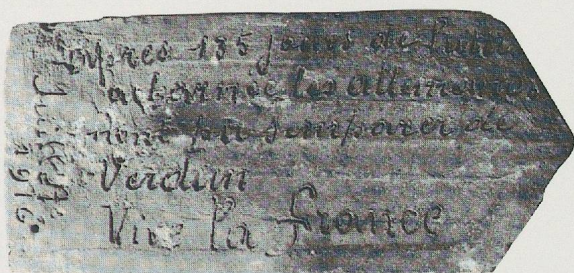 Après 135 jours de lutte
acharnée les allemands
nont pu semparer de
Verdun
Vive la france
Juillet 1916.